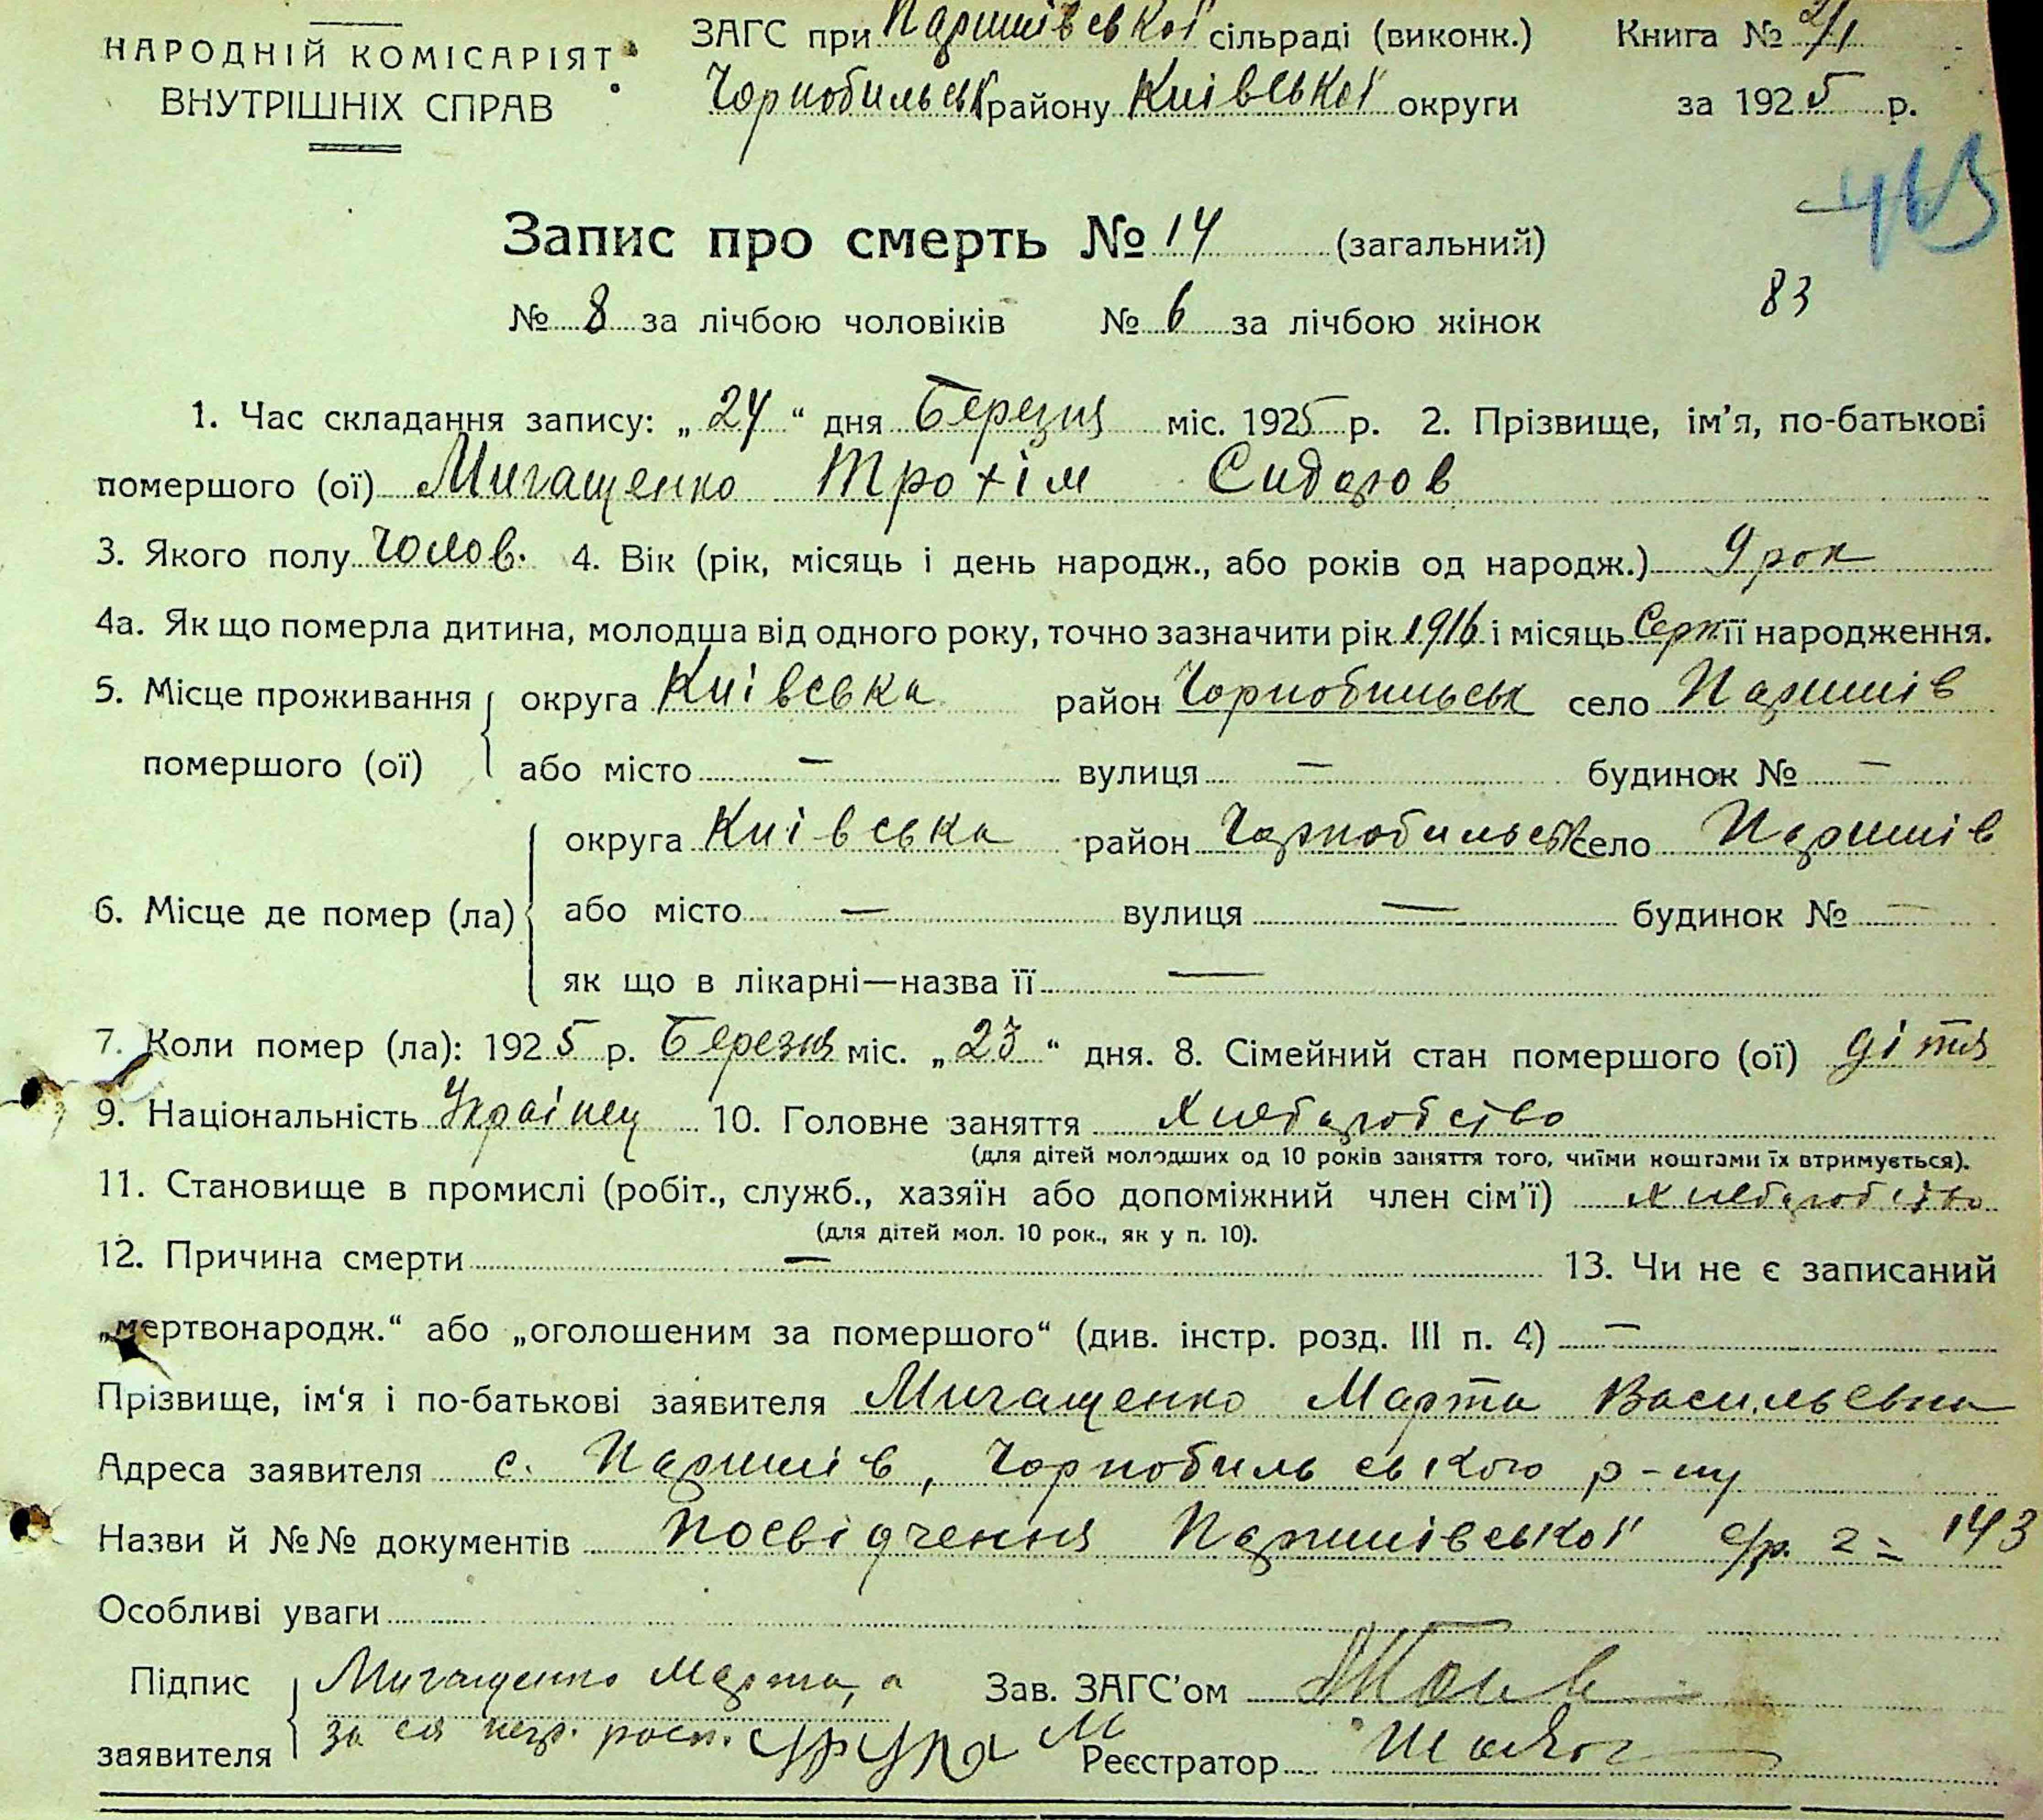 НАРОДНІЙ КОМІСАРІЯТ
ВНУТРІШНІХ СПРАВ
ЗАГС при Паришівської сільраді (виконк.)
Чорнобильськ району Київської округи
Книга № 2/1
за 1925 р.
Запис про смерть № 14 (загальний)
№ 8 за лічбою чоловіків № 6 за лічбою жінок
83
1. Час складання запису: „24“ дня Березня міс. 1925 р. 2. Прізвище, ім’я, по-батькові
помершого (ої) Мигащенко Трохім Сидоров
3. Якого полу чолов. 4. Вік (рік, місяць і день народж., або років од народж.) 9 рок
4а. Як що померла дитина, молодша від одного року, точно зазначити рік 1916 і місяць Серп її народження.
5. Місце проживання округа Київська район Чорнобильськ село Паришів
помершого (ої) або місто — вулиця — будинок № —
округа Київська район Чорнобильськ село Паришів
6. Місце де помер (ла) або місто — вулиця — будинок № —
як що в лікарні—назва її —
7. Коли помер (ла): 1925 р. Березня міс. „23“ дня. 8. Сімейний стан помершого (ої) дітя
9. Національність Українец 10. Головне заняття Хлебаробство
(для дітей молодших од 10 років заняття того, чиїми коштами їх втримується).
11. Становище в промислі (робіт., служб., хазяїн або допоміжний член сім’ї) Хлебаробство
(для дітей мол. 10 рок., як у п. 10).
12. Причина смерти — 13. Чи не є записаний
„мертвонародж.“ або „оголошеним за помершого“ (див. інстр. розд. III п. 4) —
Прізвище, ім‘я і по-батькові заявителя Мигащенко Марта Васильевна
Адреса заявителя с. Паришів, Чорнобильського р-ну
Назви й №№ документів Посвідчення Паришівської с/р. 143
Особливі уваги
Підпис Мигащенко Марта, а Зав. ЗАГС’ом
заявителя за ея негр. росп. Реєстратор